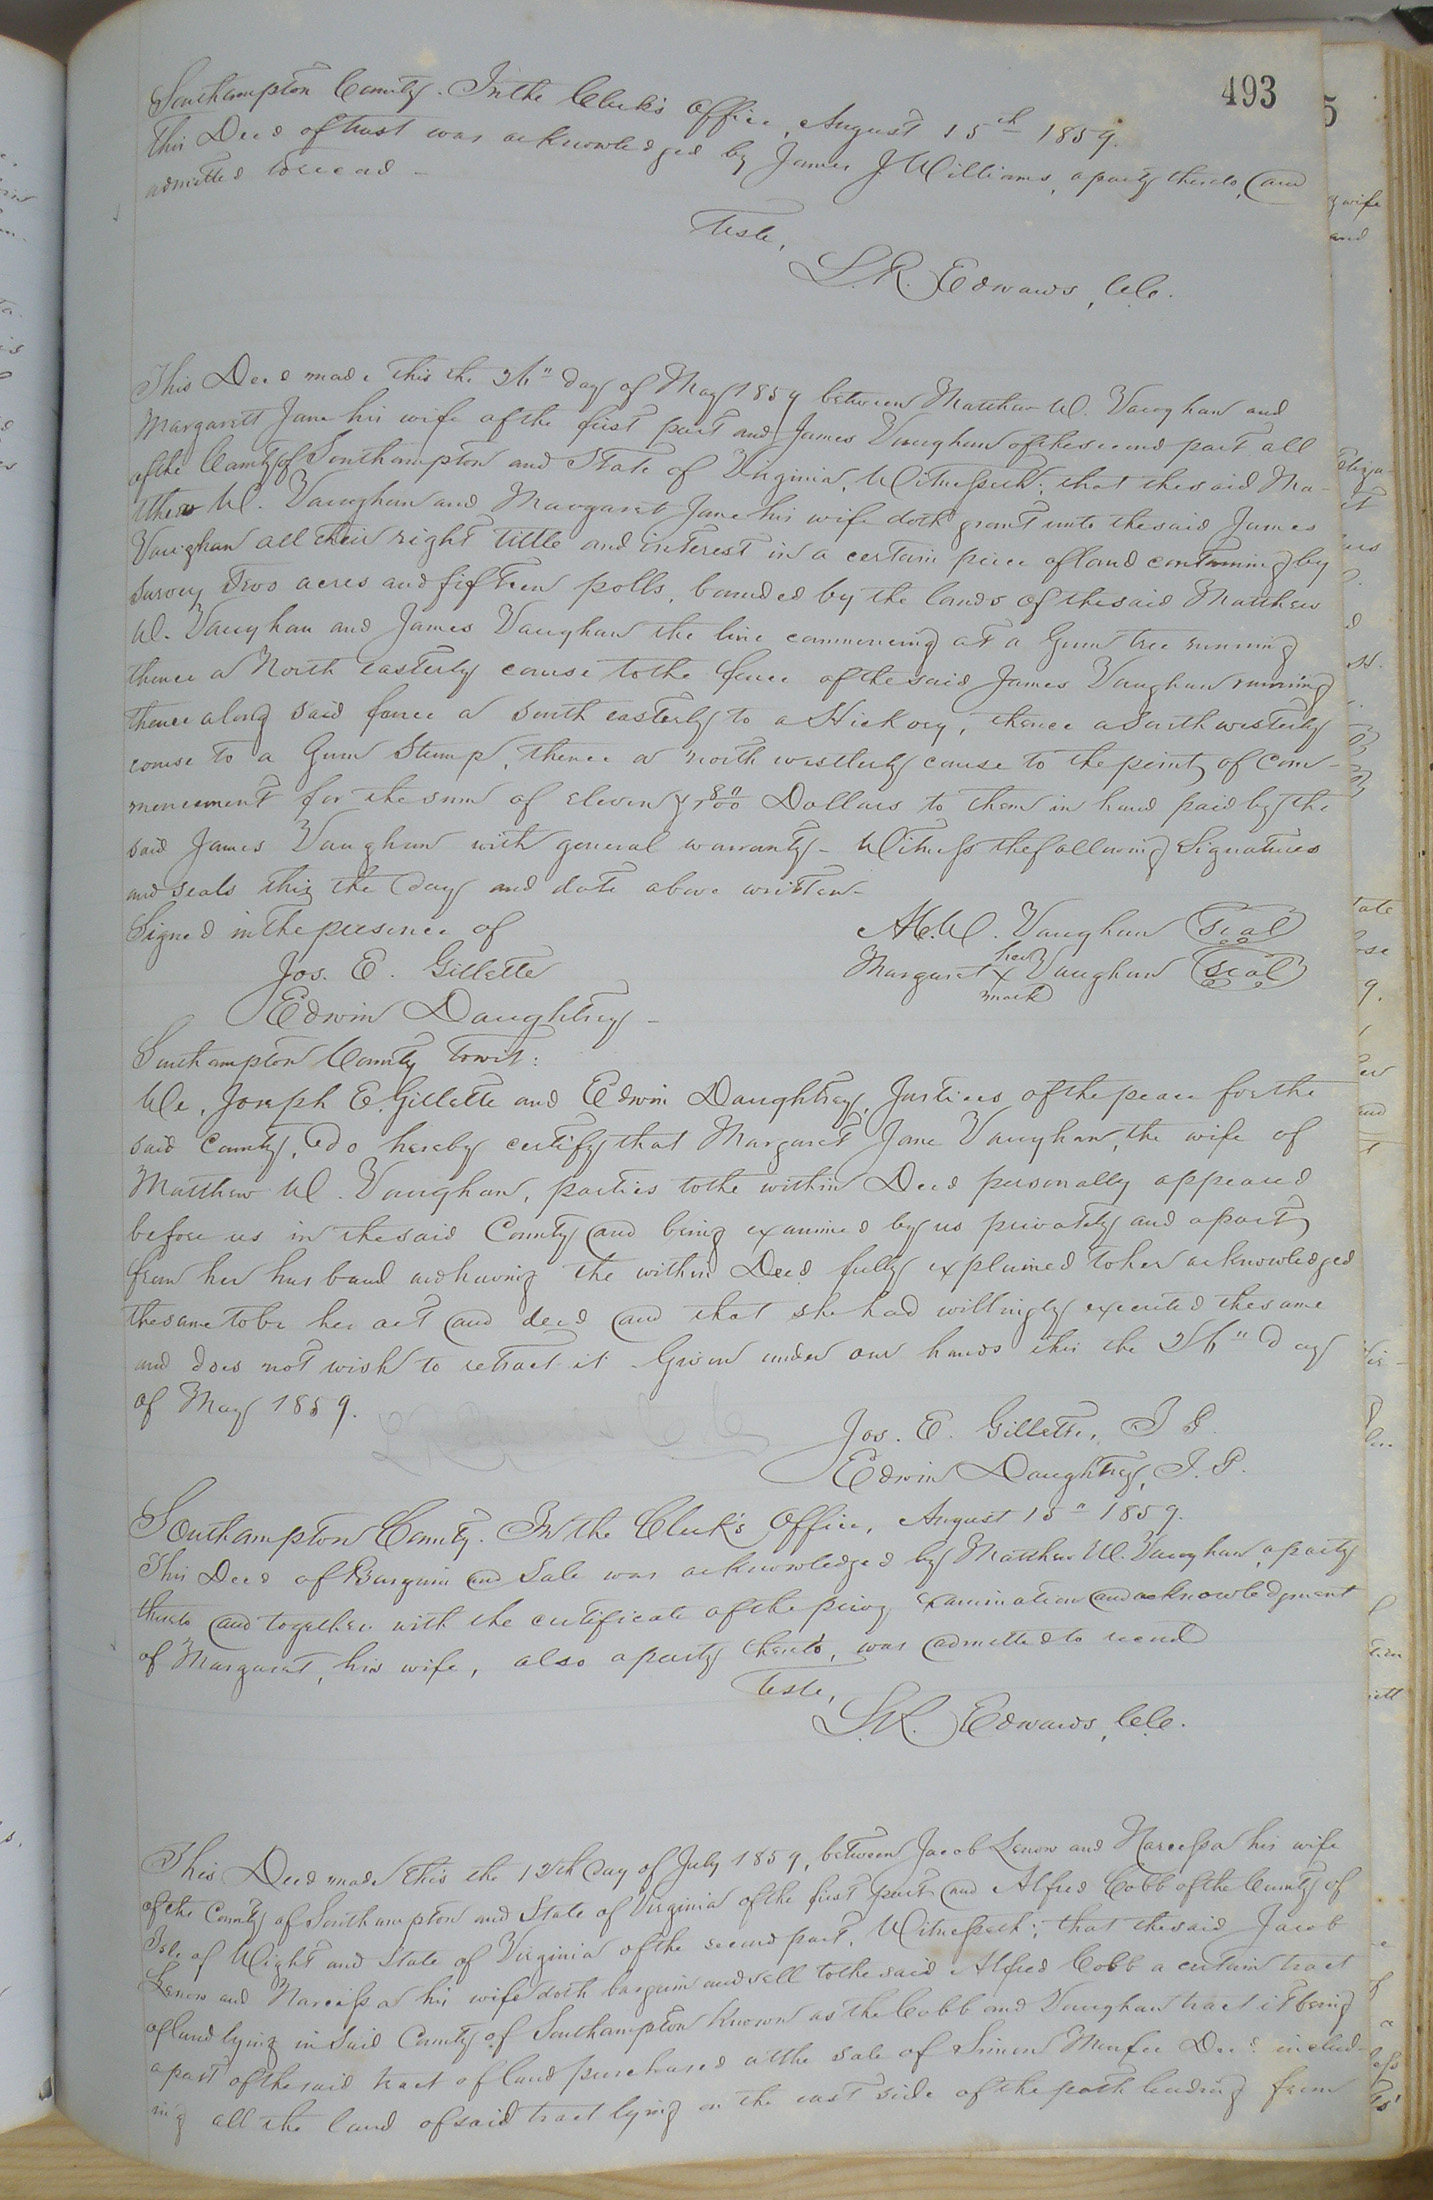 493
Southampton County. In the Clerk's Office, August 15th 1859.
This Deed of trust was acknowledged by James J Williams, a party thereto, and
admitted to record -
Teste,
L. R. Edwards, C.C.
This Deed made this the day of May 1859 between Matthew W. Vaughan and
Margarett Jane his wife of the first part and James Vaughan of the second part all
of the County of Southampton and State of Virginia, Witnesseth; that the said Ma-
tthew W. Vaughan and Margaret Jane his wife doth grant unto the said James
Vaughan all their right tittle and interest in a certain piece of land containing by
survey Two acres and fifteen polls, bounded by the lands of the said Matthew
W. Vaughan and James Vaughan the line commencing at a Gum tree running
thence a North easterly course to the fence of the said James Vaughan running
thence along said fence a south easterly to a Hickory, thence a South westerly
course to a Gum Stump, thence a north westerly course to the point of Com-
mencement for the sum of eleven & 80/100 Dollars to them in hand paid by the
said James Vaughan with general warranty - Witness the following Signatures
and seals this the day and date above written -
Signed in the presence of M. W. Vaughan Seal
Jos. E. Gillette Margaret her x mark Vaughan Seal
Edwin Daughtrey -
Southampton County Towit:
We, Joseph E. Gillette and Edwin Daughtrey, Justices of the peace for the
said County, do hereby certify that Margaret Jane Vaughan, the wife of
Matthew W. Vaughan, parties to the within Deed personally appeared
before us in the said County and being examined by us privately and apart
from her husband and having the within Deed fully explained to her acknowledged
the same to be her act and deed and that she had willingly executed the same
and does not wish to retract it Given under our hands this the day
of May 1859.
Jos. E. Gillette, J P.
Edwin Daughtrey, J. P.
Southampton County. In the Clerk's Office, August 15" 1859.
This Deed of Bargain and Sale was acknowledged by Matthew W. Vaughan, a party
thereto and together with the certificate of the privy examination and acknowledgment
of Margaret, his wife, also a party thereto, was admitted to record
Teste,
L. R. Edwards, C.C.
This Deed made this the 12th day of July 1859, between Jacob Lenow and Narcissa his wife
of the County of Southampton and State of Virginia of the first part and Alfred Cobb of the County of
Isle of Wight and State of Virginia of the second part, Witnesseth; that the said Jacob
Lenow and Narcissa his wife doth bargain and sell to the said Alfred Cobb a certain tract
of land lying in Said County of Southampton known as the Cobb and Vaughan tract it being
a part of the said tract of land purchased at the sale of Simon Dec'd. includ-
ing all the land of said tract lying on the east side of the path leading from